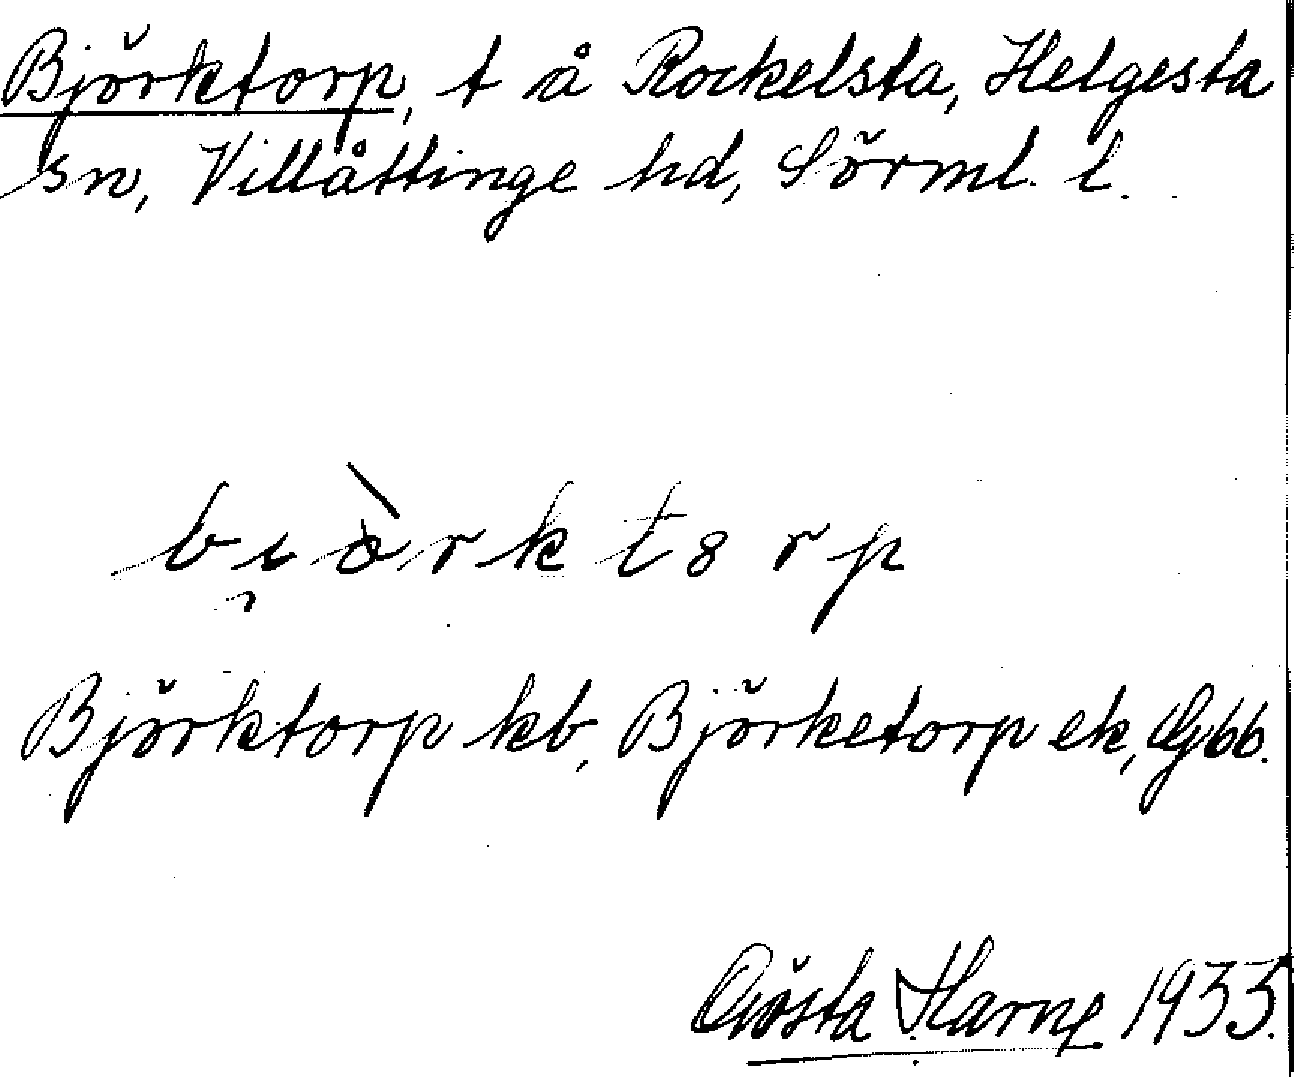 Björktorp, t å Rockelsta, Helgesta
sn, Villåttinge hd, Sörml. l.
Björktorp kb, Björketorp ek, Gbb.
Gösta Harne 1933.